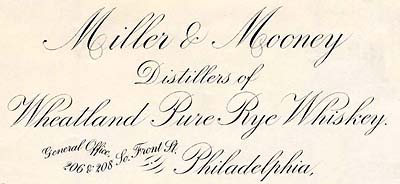 Miller & Mooney
Distillers of
Wheatland Pure Rye Whiskey.
General Office,
206 & 208 So. Front St.
Philadelphia,